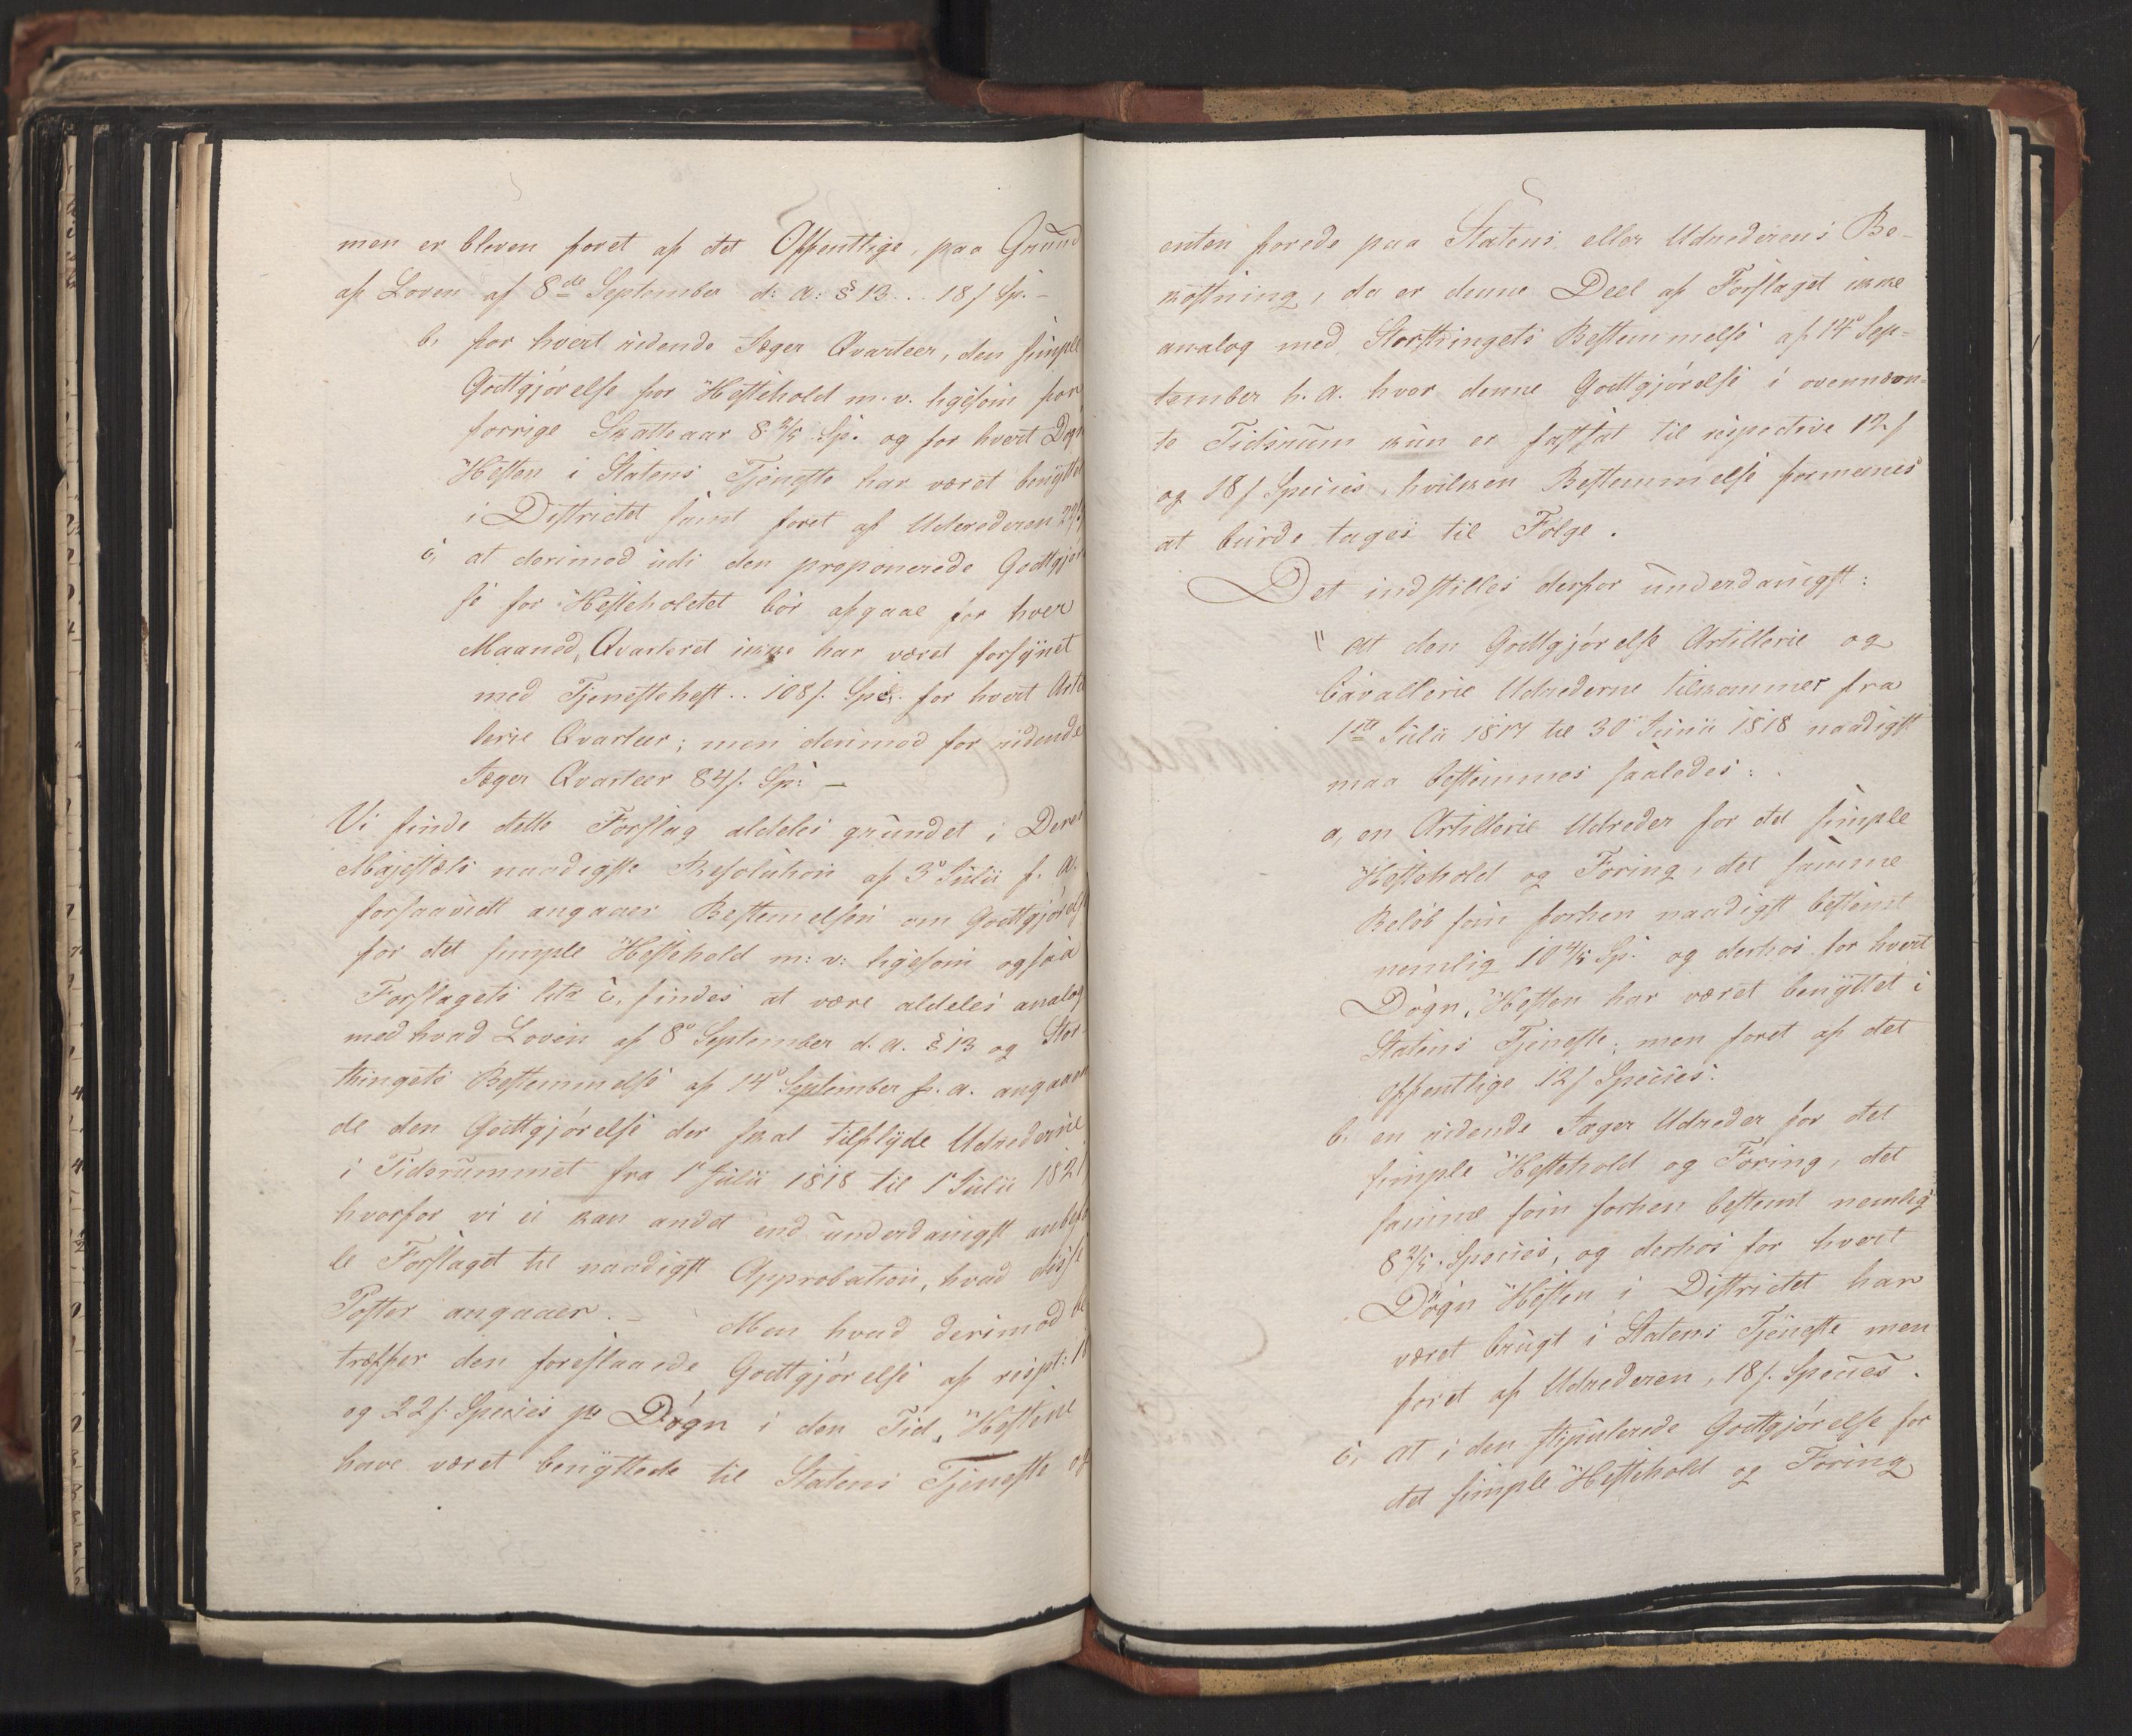 men er bleven foret af det Offentlige, paa Grund
af Loven af 8de September d: A: § 13... 18 s Sp. –
b, for hvert ridende Jæger Qvarteer, den simple
Godtgjörelse for Hestehold m. v. ligesom for
forrige Skatteaar 8 2/5 Sp. og for hvert Dögn
Hesten i Statens Tjeneste har været benÿttet
i Districtet samt foret af Udrederen 22 s
c, at derimod udi den proponerede Godtgjörel
se for Hesteholdet bör afgaae for hver
Maaned, Qvarteret ikke har været forsÿnet
med Tjenestehest .. 108 s. Spe. for hvert Artil
lerie Qvarteer; men derimod for ridende
Jæger Qvarteer 84 s. Sp: –
Vi finde dette Forslag aldeles grundet i Deres
Majestæts naadigste Resolution af 3o Julii f. A.
forsaavidt angaaer Bestemelsen om Godtgjörelse
for det simple Hestehold m: v: ligesom ogsaa
Forslagets litr c, findes at være aldeles analog
med hvad Loven af 8o September d. A. § 13 og Stor-
thingets Bestemmelse af 14o September s. a. angaaen
de den Godtgjörelse der skal tilflÿde Udrederne
i Tidsrummet fra 1o Julii 1818 til 1o Julii 1821
hvorfor vi ei kan andet end underdanigst anbefa
le Forslaget til naadigst Approbation, hvad disse
Poster angaaer. – Men hvad derimod be
træffer den foreslaaede Godtgjörelse af respt: 18
og 22 s. Species pr Dögn i den Tid, Hestene
have været benÿttede til Statens Tjeneste og
enten forede paa Statens eller Udrederens Be-
kostning, da er denne Deel af Forslaget ikke
analog med Storthingets Bestemmelse af 14o Sep-
tember h. A. hvor denne Godtgjörelse i ovennævn-
te Tidsrum kun er fastsat til respective 12 s
og 18 s Species, hvilken Bestemmelse formenes
at burde tages til Fölge.
Det indstilles derfor underdanigst:
" at den Godtgjörelse Artillerie og
Cavallerie Udrederne tilkommer fra
1ste Julii 1817 til 30 Junii 1818 naadigst
maa bestemmes saaledes:
a, en Artillerie Udreder for det simple
Hestehold og Foring, det samme
Belöb som forhen naadigst bestemt
nemlig 10 4/5 Sp. og derhos for hvert
Dögn, Hesten har været benÿttet i
Statens Tjeneste, men foret af det
offentlige 12 s Species.
b. en ridende Jæger Udreder for det
simple Hestehold og Foring, det
samme som forhen bestemt nemlig
8 2/5. Species, og derhos for hvert
Dögn Hesten i Districtet har
været brugt i Statens Tjeneste men
foret af Udrederen, 18 s. Species.
c, at i den stipulerede Godtgjörelse for
det simple Hestehold og Foring